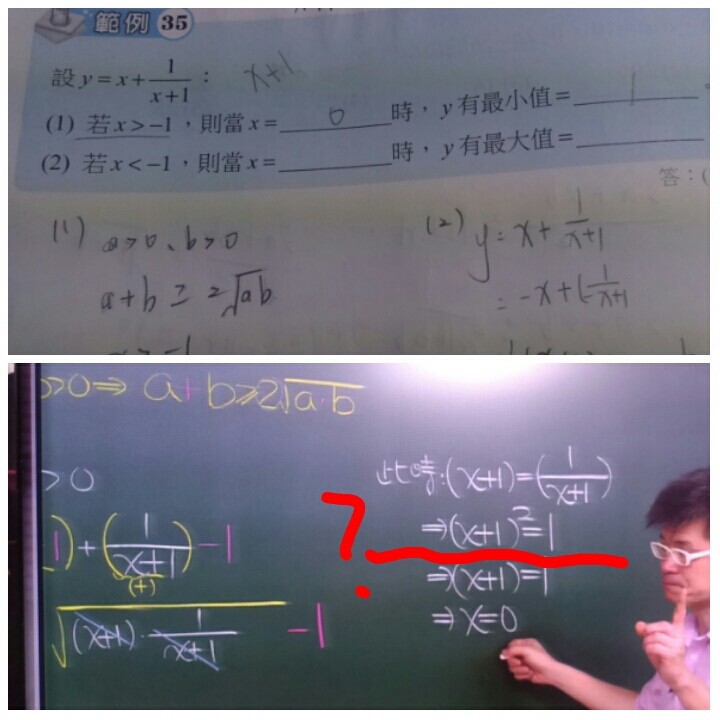 範例 35
設 y = x + \frac{1}{x+1} :
x+1
(1) 若 x > -1,則當 x = 0 時,y 有最小值 = 1 。
(2) 若 x < -1,則當 x = ____ 時,y 有最大值 = ____
答:(
(1) a>0、b>0
a+b ≥ 2\sqrt{ab}
(2) y = x + \frac{1}{x+1}
= -x + (-\frac{1}{x+1}
>0 ⇒ a+b ≥ 2\sqrt{a·b}
>0
1) + (\frac{1}{x+1}) - 1
(+)
\sqrt{(x+1)·\frac{1}{x+1}} - 1
此時:(x+1) = (\frac{1}{x+1})
⇒ (x+1)^2 = 1
?
⇒ (x+1) = 1
⇒ x = 0